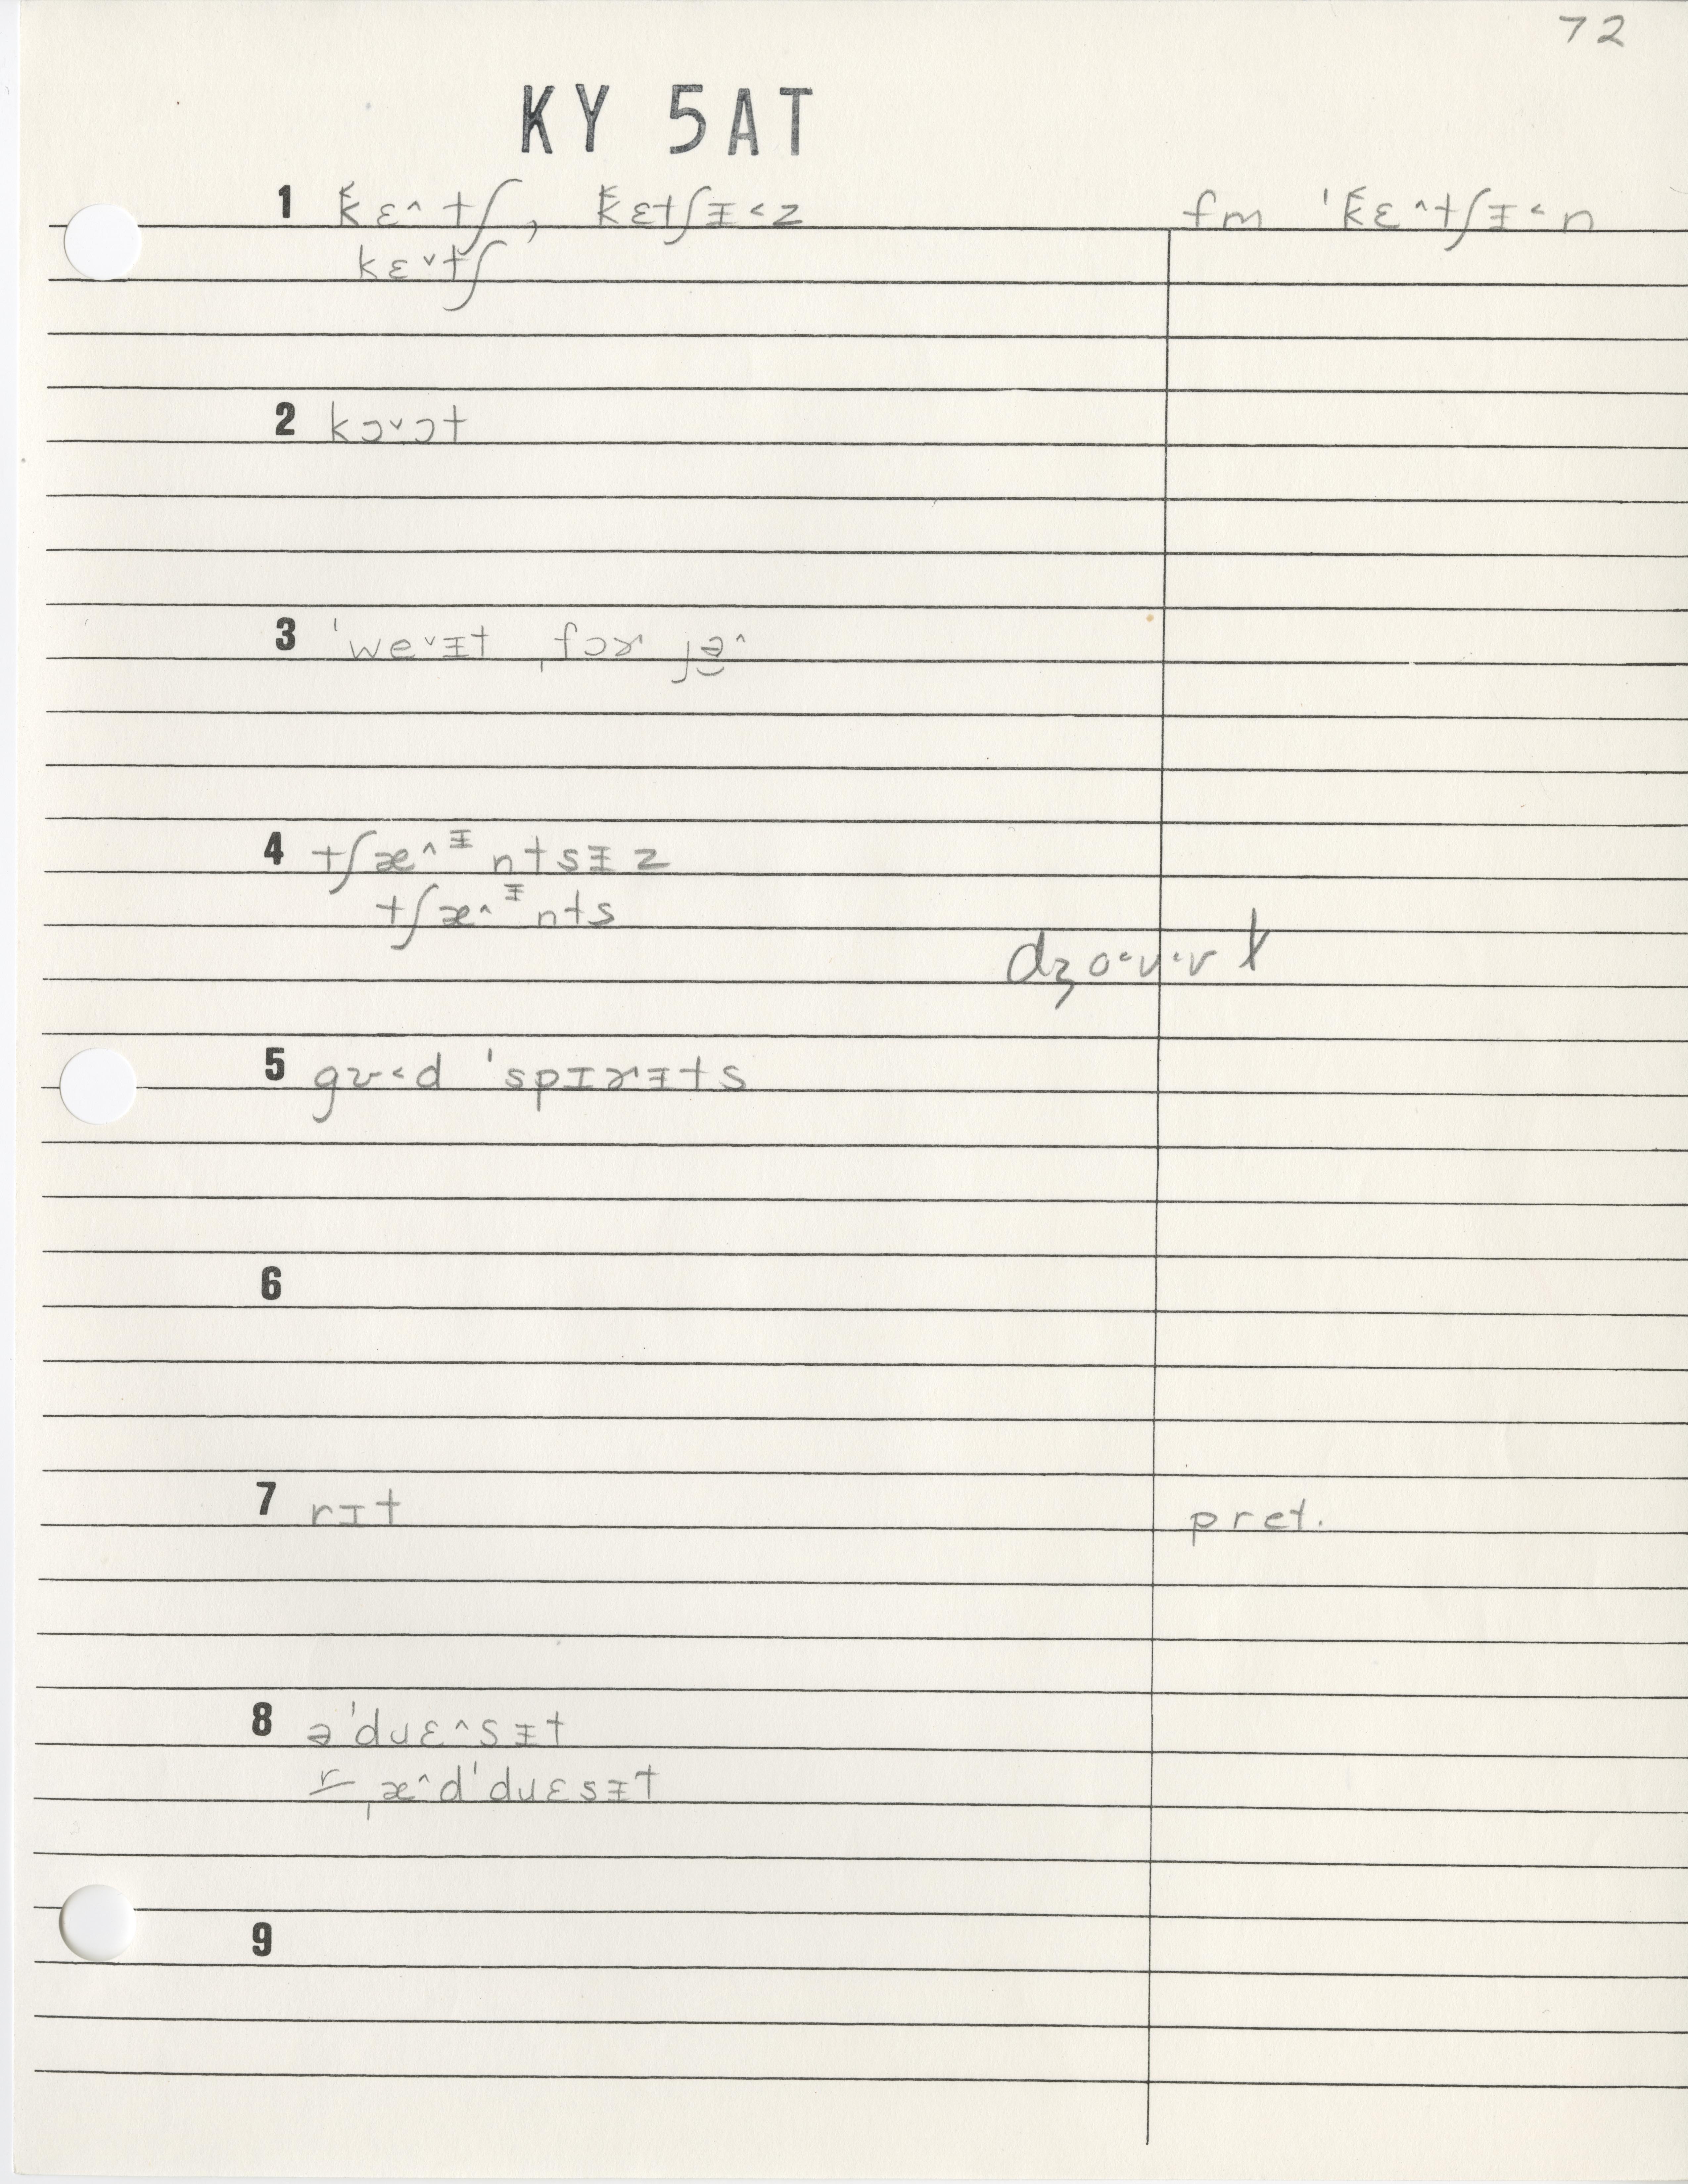 72
KY 5AT
1 k̆ɛ˄tʃ, k̆ɛtʃᵻ˂z fm 'k̆ɛ˄tʃᵻ˂n
kɛ˅tʃ
2 kɔ˅ɔt
3 'we˅ᵻt ˌfɔɚ jə̮˄
4 tʃæ˄ᵻntsᵻz
tʃæ˄ᵻnts
dʒo˂ʊ˂ʊ
5 gʊ˂d 'spɪɚᵻts
6
7 rɪt pret.
8 ə'duɛ˄sᵻt
r ˌæ˄d'duɛsᵻt
9